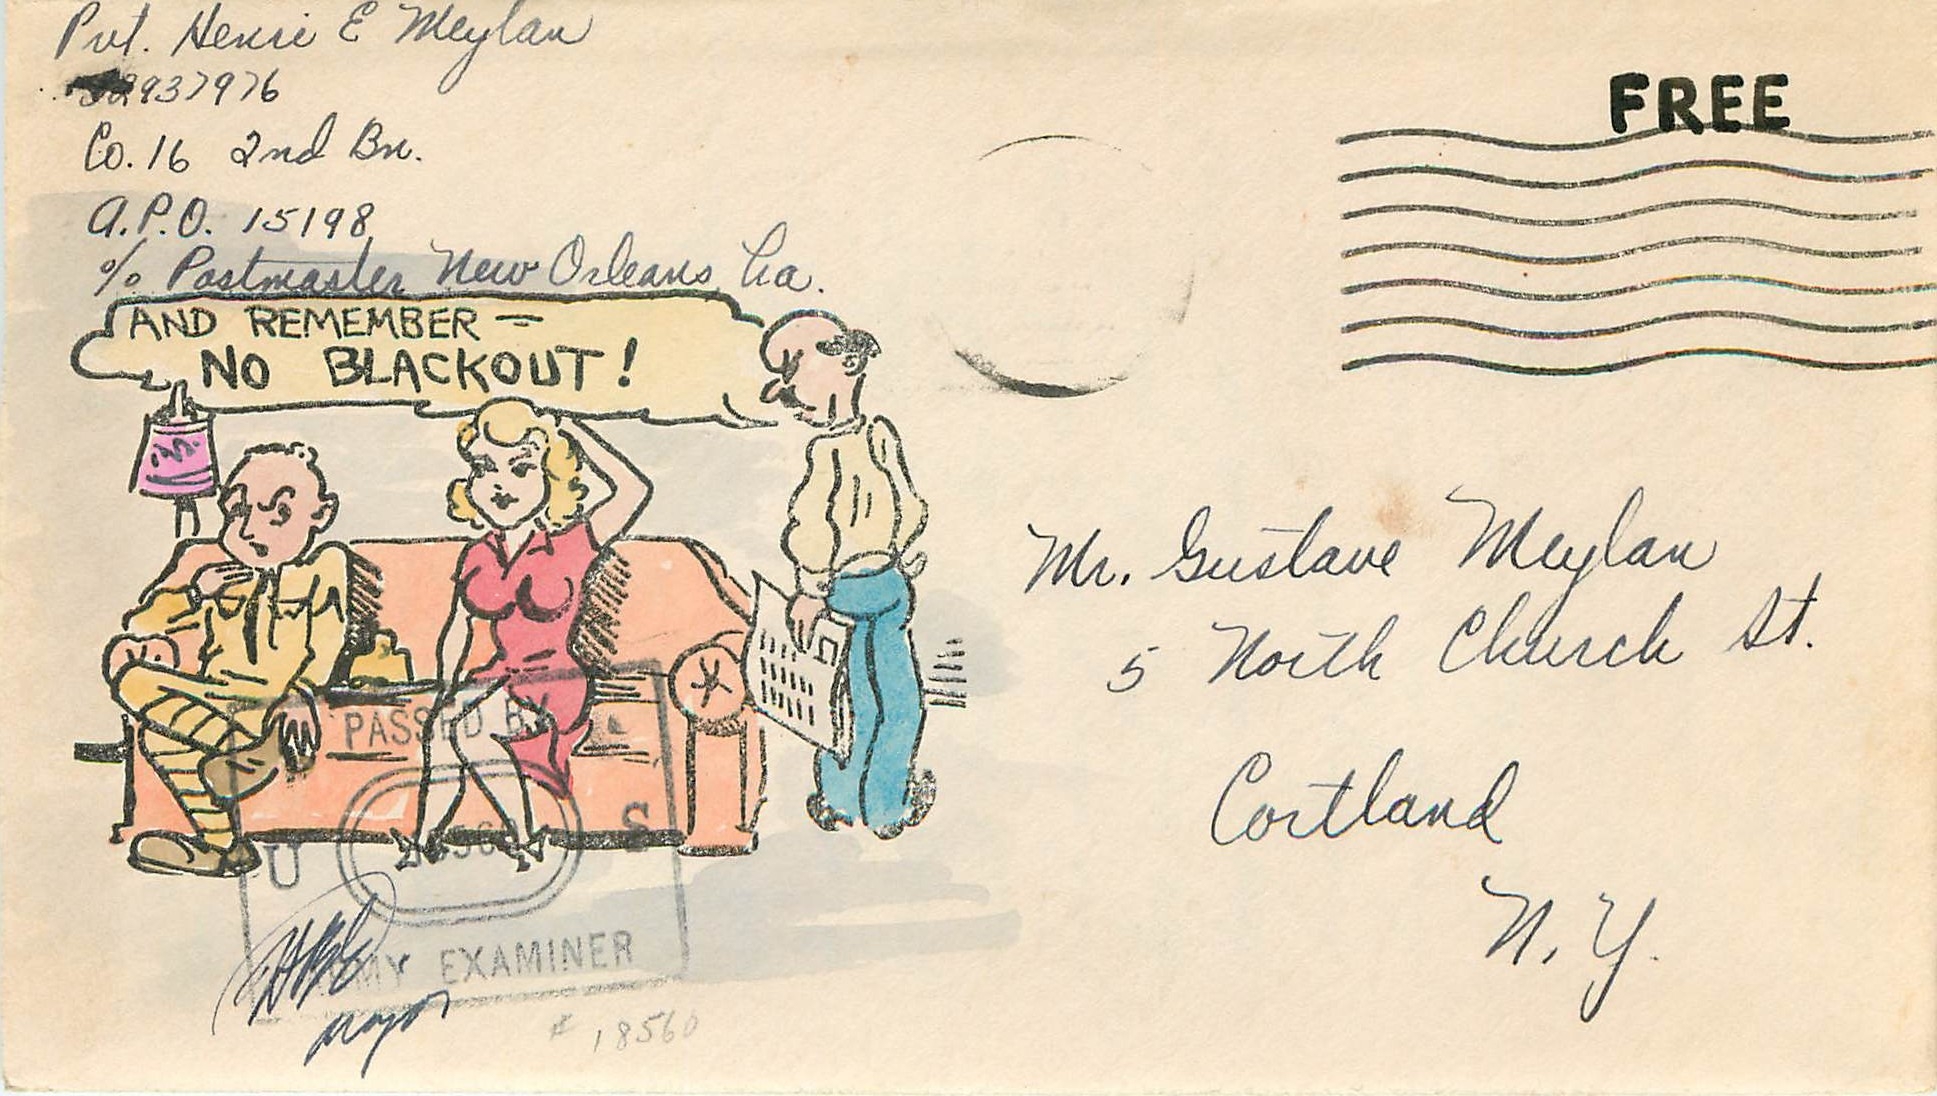 Pvt. Henri E Meylan
32937976
Co. 16 2nd Bn.
A.P.O. 15198
% Postmaster New Orleans, La.
FREE
AND REMEMBER —
NO BLACKOUT!
Mr. Gustave Meylan
5 North Church St.
Cortland
N.Y.
PASSED BY
U S
ARMY EXAMINER
Major
# 18560